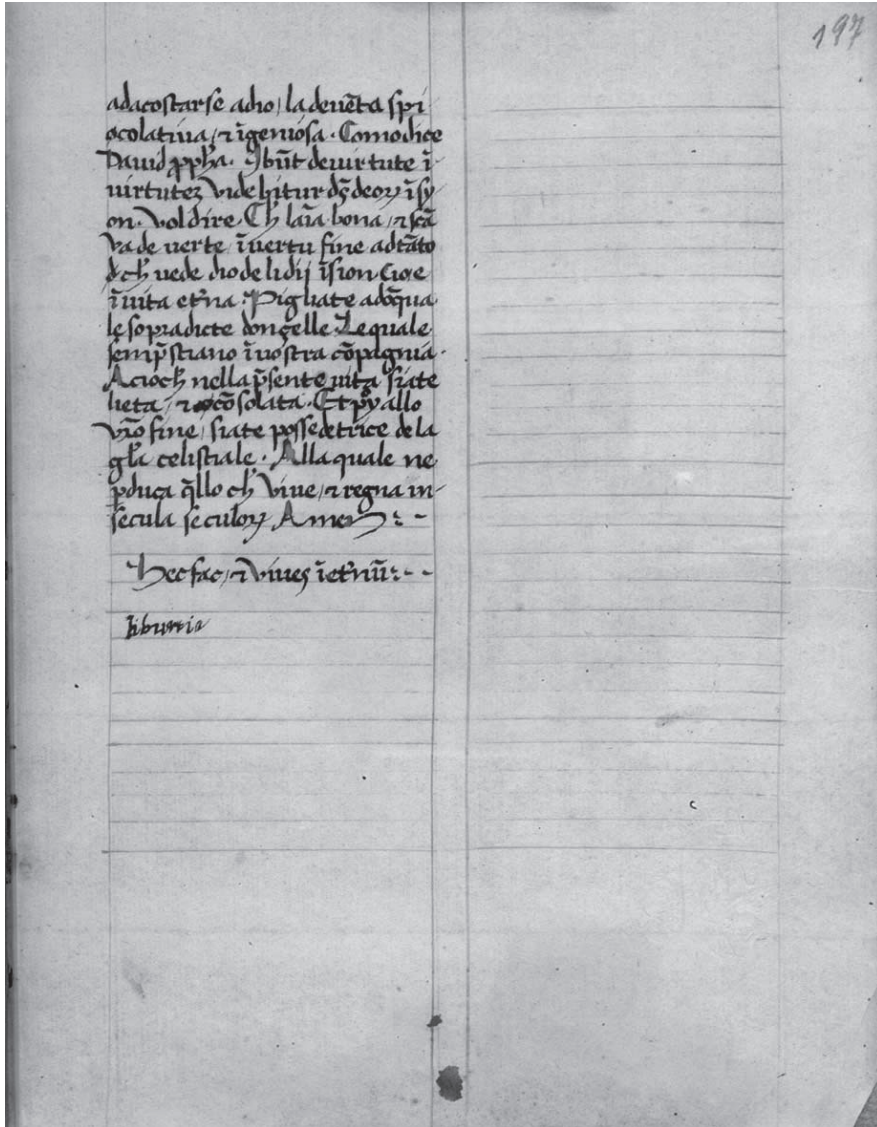 197
adacostarse adio, la deuẽta spi
Como dice
Dauid ꝓph̃a. Ibũt deuirtute ĩ
uirtuteȝ Videbitur dꝰ deoꝝ ĩ sy
on. Vol dire Cħ laĩa bona, ⁊ scã
Va de uerte ĩ uertu fine adtãto
cħ uede dio de li dij ĩ sion Cioe
ĩ uita et̃na. Pigliate adõqua
le sopradicte dongelle Le quale
semp̃ stiano ĩ uostra cõpagnia.
Acciocħ nella p̃sente uita siate
lieta, ⁊ cõsolata. Et allo
Vr̃o fine, siate possedetrice de la
gl̃a celistiale. Alla quale ne
ꝑduca q̃llo cħ Viue, ⁊ regna in
secula seculoꝝ Amen :~
Hec fac, ⁊ Viues ĩ et̃nũ :~